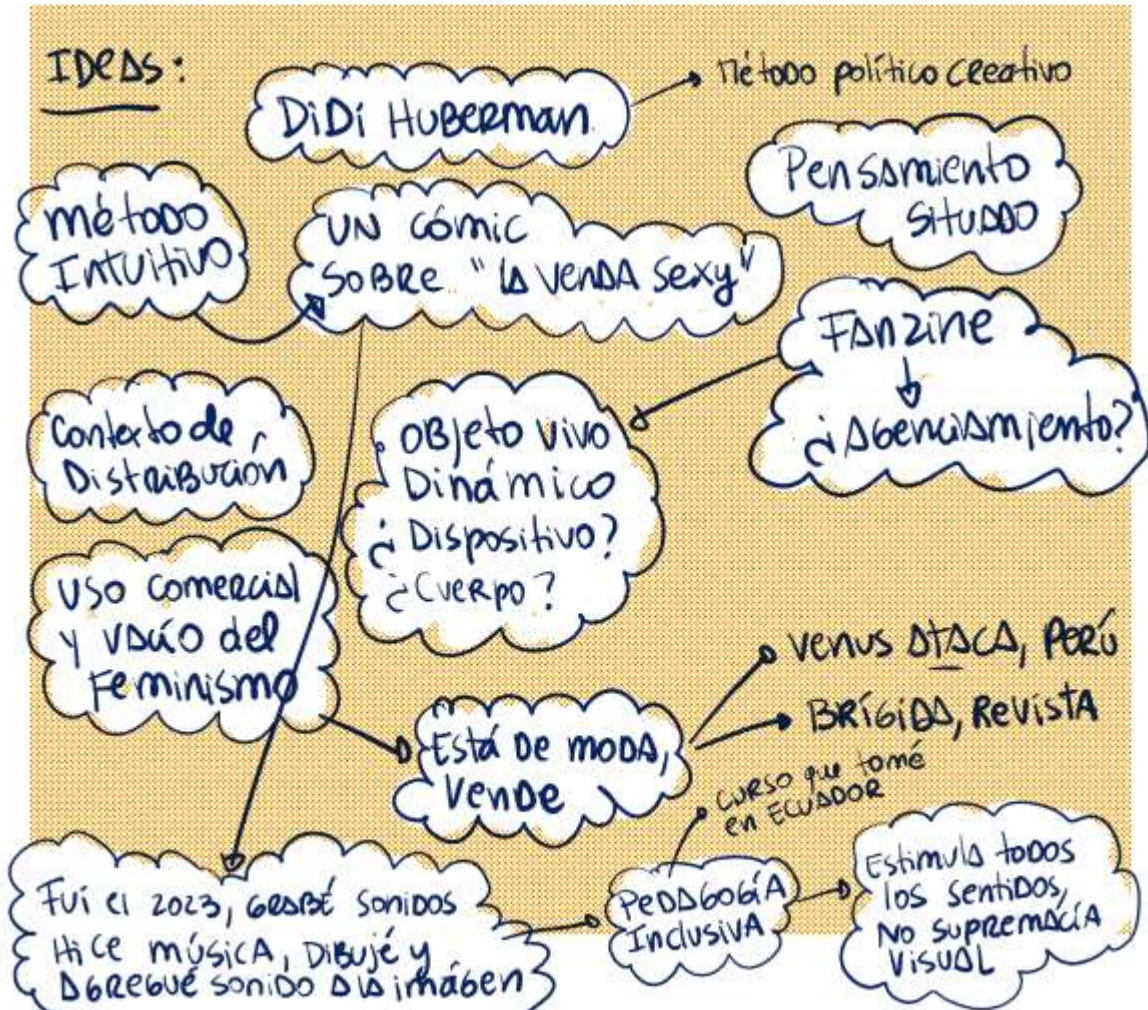 IDEAS:
DIDI HUBERMAN
Método político creativo
Pensamiento
situado
Método
Intuitivo
UN CÓMIC
SOBRE "LA VENDA SEXY"
FANZINE
¿AGENCIAMIENTO?
Contexto de
Distribución
OBJETO VIVO
Dinámico
¿Dispositivo?
¿CUERPO?
USO COMERCIAL
Y VACÍO del
FEMINISMO
Está DE MODA,
VENDE
VENUS ATACA, PERÚ
BRÍGIDA, REVISTA
CURSO que tomé
en ECUADOR
Fuí el 2023, GRABÉ SONIDOS
HICE MÚSICA, DIBUJÉ Y
AGREGUÉ SONIDO A LA imágen
PEDAGOGÍA
INCLUSIVA
Estimula todos
los sentidos,
NO SUPREMACÍA
VISUAL